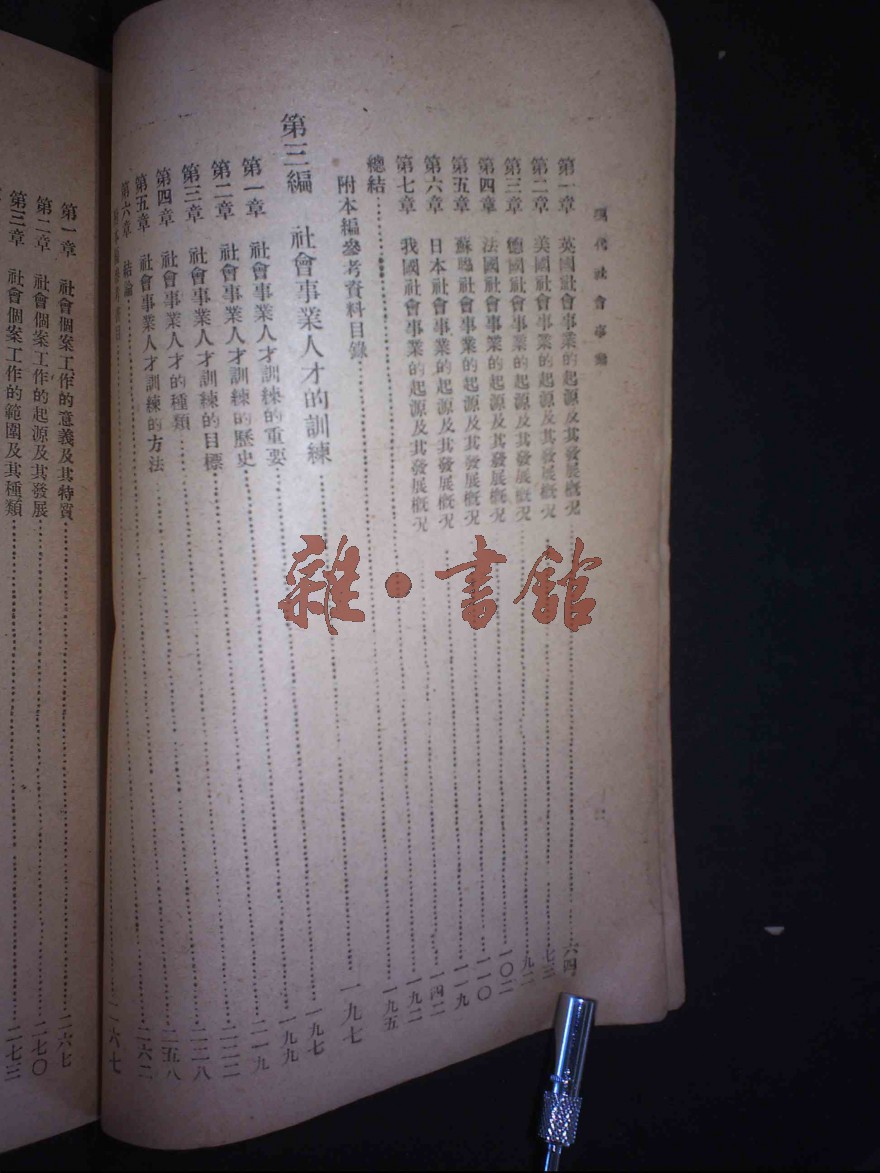 現代社會事業
第一章 英國社會事業的起源及其發展概況 六四
第二章 美國社會事業的起源及其發展概況 七三
第三章 德國社會事業的起源及其發展概況 九二
第四章 法國社會事業的起源及其發展概況 一〇二
第五章 蘇聯社會事業的起源及其發展概況 一一〇
第六章 日本社會事業的起源及其發展概況 一一九
第七章 我國社會事業的起源及其發展概況 一四二
總結 一九二
附本編參考資料目錄 一九五
第三編 社會事業人才的訓練 一九七
第一章 社會事業人才訓練的重要 一九七
第二章 社會事業人才訓練的歷史 一九九
第三章 社會事業人才訓練的目標 二一九
第四章 社會事業人才的種類 二二二
第五章 社會事業人才訓練的方法 二三八
第六章 結論 二五八
附本編參考書目 二六二
第一章 社會個案工作的意義及其特質 二六七
第二章 社會個案工作的起源及其發展 二七〇
第三章 社會個案工作的範圍及其種類 二七三
雜·書館